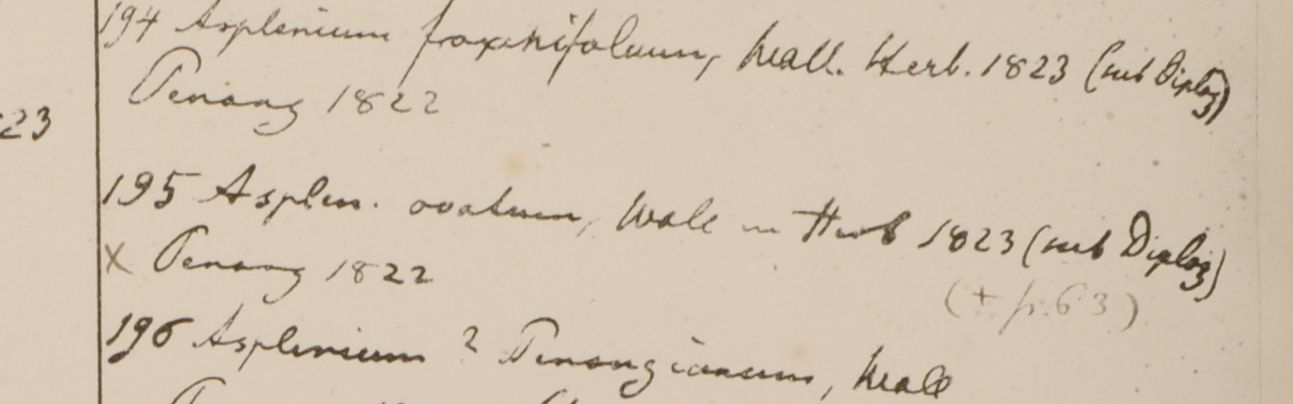 194 Asplenium fraxinifolium, Wall. Herb. 1823 (sub Diplaz)
Penang 1822
23
195 Asplen. ovatum, Wall in Herb 1823 (sub Diplaz)
x Penang 1822
(+ p. 63)
196 Asplenium ? Penangianum, Wall